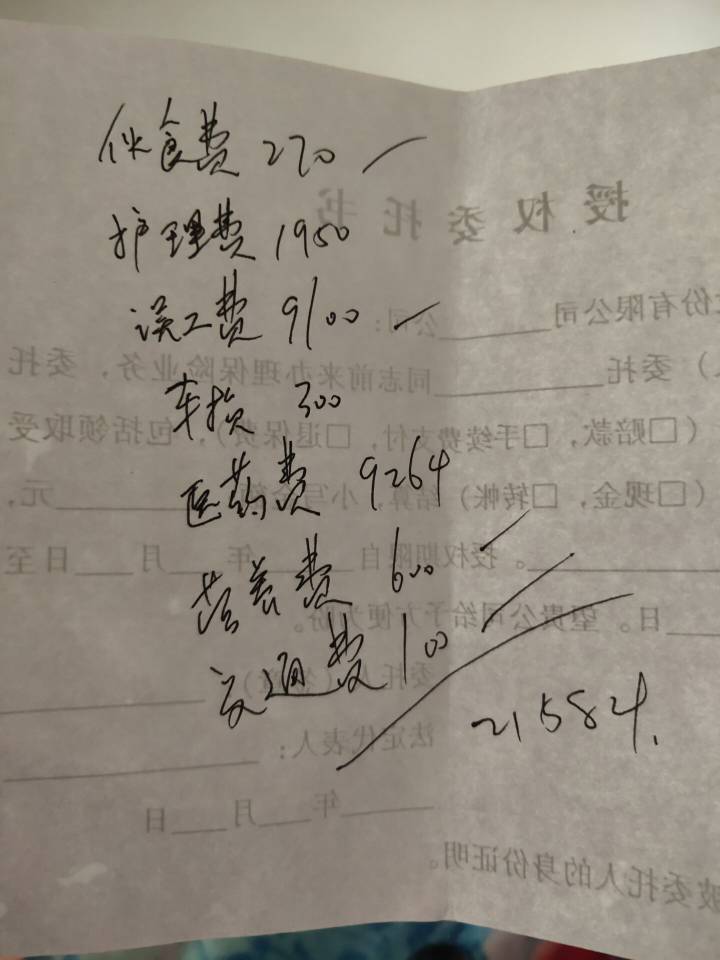 伙食费 270
护理费 1950
误工费 9100
车损 300
医药费 9264
营养费 600
交通费 100
21584.
授权委托书
份有限公司
公司：
）委托
同志前来办理保险业务，委托
（□赔款，□手续费支付，□退保费），包括领取受
（□现金，□转帐）结算，小写金额
元，
。授权期限自
年
月
日至
日。望贵公司给予方便为盼。
委托人（签章）
法定代表人：
年
月
日
被委托人的身份证明。